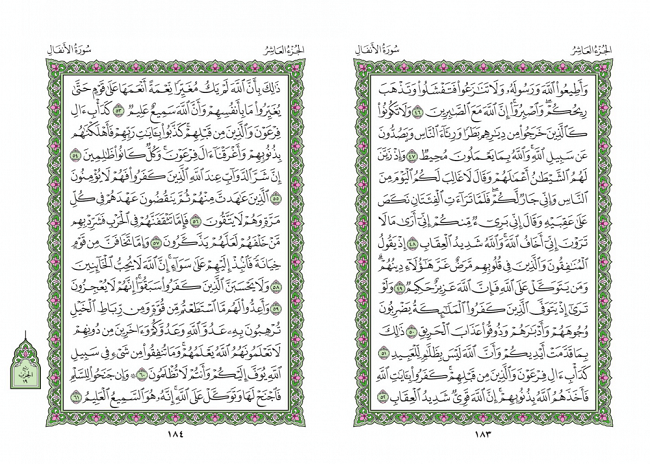 الجزء العاشر
سورة الأنفال
وَأَطِيعُوا۟ ٱللَّهَ وَرَسُولَهُۥ وَلَا تَنَٰزَعُوا۟ فَتَفْشَلُوا۟ وَتَذْهَبَ
رِيحُكُمْ ۖ وَٱصْبِرُوٓا۟ ۚ إِنَّ ٱللَّهَ مَعَ ٱلصَّٰبِرِينَ ٤٦ وَلَا تَكُونُوا۟
كَٱلَّذِينَ خَرَجُوا۟ مِن دِيَٰرِهِم بَطَرًا وَرِئَآءَ ٱلنَّاسِ وَيَصُدُّونَ
عَن سَبِيلِ ٱللَّهِ ۚ وَٱللَّهُ بِمَا يَعْمَلُونَ مُحِيطٌ ٤٧ وَإِذْ زَيَّنَ
لَهُمُ ٱلشَّيْطَٰنُ أَعْمَٰلَهُمْ وَقَالَ لَا غَالِبَ لَكُمُ ٱلْيَوْمَ مِنَ
ٱلنَّاسِ وَإِنِّى جَارٌ لَّكُمْ ۖ فَلَمَّا تَرَآءَتِ ٱلْفِئَتَانِ نَكَصَ
عَلَىٰ عَقِبَيْهِ وَقَالَ إِنِّى بَرِىٓءٌ مِّنكُمْ إِنِّىٓ أَرَىٰ مَا لَا
تَرَوْنَ إِنِّىٓ أَخَافُ ٱللَّهَ ۚ وَٱللَّهُ شَدِيدُ ٱلْعِقَابِ ٤٨ إِذْ يَقُولُ
ٱلْمُنَٰفِقُونَ وَٱلَّذِينَ فِى قُلُوبِهِم مَّرَضٌ غَرَّ هَٰٓؤُلَآءِ دِينُهُمْ ۗ
وَمَن يَتَوَكَّلْ عَلَى ٱللَّهِ فَإِنَّ ٱللَّهَ عَزِيزٌ حَكِيمٌ ٤٩ وَلَوْ
تَرَىٰٓ إِذْ يَتَوَفَّى ٱلَّذِينَ كَفَرُوا۟ ۙ ٱلْمَلَٰٓئِكَةُ يَضْرِبُونَ
وُجُوهَهُمْ وَأَدْبَٰرَهُمْ وَذُوقُوا۟ عَذَابَ ٱلْحَرِيقِ ٥٠ ذَٰلِكَ
بِمَا قَدَّمَتْ أَيْدِيكُمْ وَأَنَّ ٱللَّهَ لَيْسَ بِظَلَّٰمٍ لِّلْعَبِيدِ ٥١
كَدَأْبِ ءَالِ فِرْعَوْنَ ۙ وَٱلَّذِينَ مِن قَبْلِهِمْ ۚ كَفَرُوا۟ بِـَٔايَٰتِ ٱللَّهِ
فَأَخَذَهُمُ ٱللَّهُ بِذُنُوبِهِمْ ۗ إِنَّ ٱللَّهَ قَوِىٌّ شَدِيدُ ٱلْعِقَابِ ٥٢
١٨٣
الجزء العاشر
سورة الأنفال
ذَٰلِكَ بِأَنَّ ٱللَّهَ لَمْ يَكُ مُغَيِّرًا نِّعْمَةً أَنْعَمَهَا عَلَىٰ قَوْمٍ حَتَّىٰ
يُغَيِّرُوا۟ مَا بِأَنفُسِهِمْ ۙ وَأَنَّ ٱللَّهَ سَمِيعٌ عَلِيمٌ ٥٣ كَدَأْبِ ءَالِ
فِرْعَوْنَ ۙ وَٱلَّذِينَ مِن قَبْلِهِمْ ۚ كَذَّبُوا۟ بِـَٔايَٰتِ رَبِّهِمْ فَأَهْلَكْنَٰهُم
بِذُنُوبِهِمْ وَأَغْرَقْنَآ ءَالَ فِرْعَوْنَ ۚ وَكُلٌّ كَانُوا۟ ظَٰلِمِينَ ٥٤
إِنَّ شَرَّ ٱلدَّوَآبِّ عِندَ ٱللَّهِ ٱلَّذِينَ كَفَرُوا۟ فَهُمْ لَا يُؤْمِنُونَ
٥٥ ٱلَّذِينَ عَٰهَدتَّ مِنْهُمْ ثُمَّ يَنقُضُونَ عَهْدَهُمْ فِى كُلِّ
مَرَّةٍ وَهُمْ لَا يَتَّقُونَ ٥٦ فَإِمَّا تَثْقَفَنَّهُمْ فِى ٱلْحَرْبِ فَشَرِّدْ بِهِم
مَّنْ خَلْفَهُمْ لَعَلَّهُمْ يَذَّكَّرُونَ ٥٧ وَإِمَّا تَخَافَنَّ مِن قَوْمٍ
خِيَانَةً فَٱنۢبِذْ إِلَيْهِمْ عَلَىٰ سَوَآءٍ ۚ إِنَّ ٱللَّهَ لَا يُحِبُّ ٱلْخَآئِنِينَ
٥٨ وَلَا يَحْسَبَنَّ ٱلَّذِينَ كَفَرُوا۟ سَبَقُوٓا۟ ۚ إِنَّهُمْ لَا يُعْجِزُونَ
٥٩ وَأَعِدُّوا۟ لَهُم مَّا ٱسْتَطَعْتُم مِّن قُوَّةٍ وَمِن رِّبَاطِ ٱلْخَيْلِ
تُرْهِبُونَ بِهِۦ عَدُوَّ ٱللَّهِ وَعَدُوَّكُمْ وَءَاخَرِينَ مِن دُونِهِمْ
لَا تَعْلَمُونَهُمُ ٱللَّهُ يَعْلَمُهُمْ ۚ وَمَا تُنفِقُوا۟ مِن شَىْءٍ فِى سَبِيلِ
ٱللَّهِ يُوَفَّ إِلَيْكُمْ وَأَنتُمْ لَا تُظْلَمُونَ ٦٠ ۞ وَإِن جَنَحُوا۟ لِلسَّلْمِ
فَٱجْنَحْ لَهَا وَتَوَكَّلْ عَلَى ٱللَّهِ ۚ إِنَّهُۥ هُوَ ٱلسَّمِيعُ ٱلْعَلِيمُ ٦١
١٨٤
الحزب
١٩